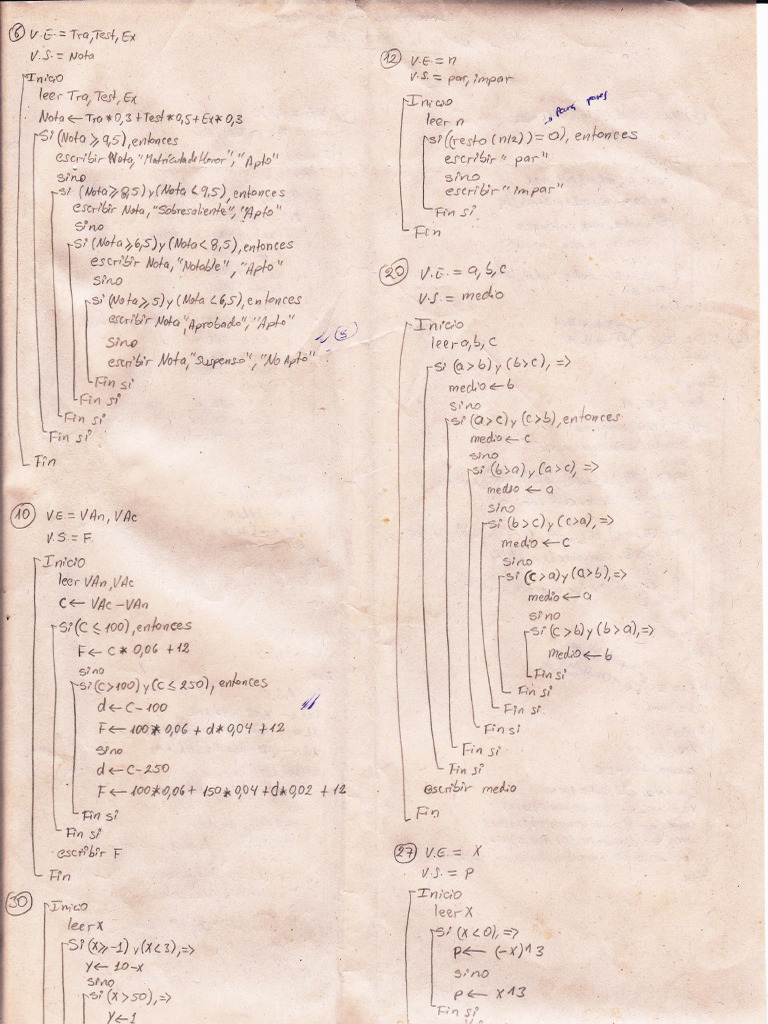 6 V.E. = Tra, Test, Ex
V.S. = Nota
Inicio
leer Tra, Test, Ex
Nota ← Tra * 0,3 + Test * 0,5 + Ex * 0,3
Si (Nota ≥ 9,5), entonces
escribir Nota, "Matrícula de Honor", "Apto"
sino
si (Nota ≥ 8,5) y (Nota < 9,5), entonces
escribir Nota, "Sobresaliente", "Apto"
sino
si (Nota ≥ 6,5) y (Nota < 8,5), entonces
escribir Nota, "Notable", "Apto"
sino
si (Nota ≥ 5) y (Nota < 6,5), entonces
escribir Nota, "Aprobado", "Apto"
sino
(5)
escribir Nota, "Suspenso", "No Apto"
Fin si
Fin si
Fin si
Fin si
Fin
10 VE = VAn, VAc
V.S. = F
Inicio
leer VAn, VAc
C ← VAc - VAn
Si (C ≤ 100), entonces
F ← C * 0,06 + 12
sino
si (C > 100) y (C ≤ 250), entonces
d ← C - 100
F ← 100 * 0,06 + d * 0,04 + 12
sino
d ← C - 250
F ← 100 * 0,06 + 150 * 0,04 + d * 0,02 + 12
Fin si
Fin si
escribir F
Fin
30 Inicio
leer x
Si (x ≥ -1) y (x < 3), =>
y ← 10 - x
sino
si (x > 50), =>
y ← 1
12 V.E. = n
V.S. = par, impar
Inicio
leer n
si ((resto (n/2)) = 0), entonces
escribir "par"
sino
escribir "impar"
Fin si
Fin
20 V.E. = a, b, c
V.S. = medio
Inicio
leer a, b, c
si (a > b) y (b > c), =>
medio ← b
sino
si (a > c) y (c > b), entonces
medio ← c
sino
si (b > a) y (a > c), =>
medio ← a
sino
si (b > c) y (c > a), =>
medio ← c
sino
si (c > a) y (a > b), =>
medio ← a
sino
si (c > b) y (b > a), =>
medio ← b
Fin si
Fin si
Fin si
Fin si
Fin si
Fin si
escribir medio
Fin
27 V.E. = X
V.S. = P
Inicio
leer X
si (x < 0), =>
P ← (-x)^3
sino
P ← x^3
Fin si